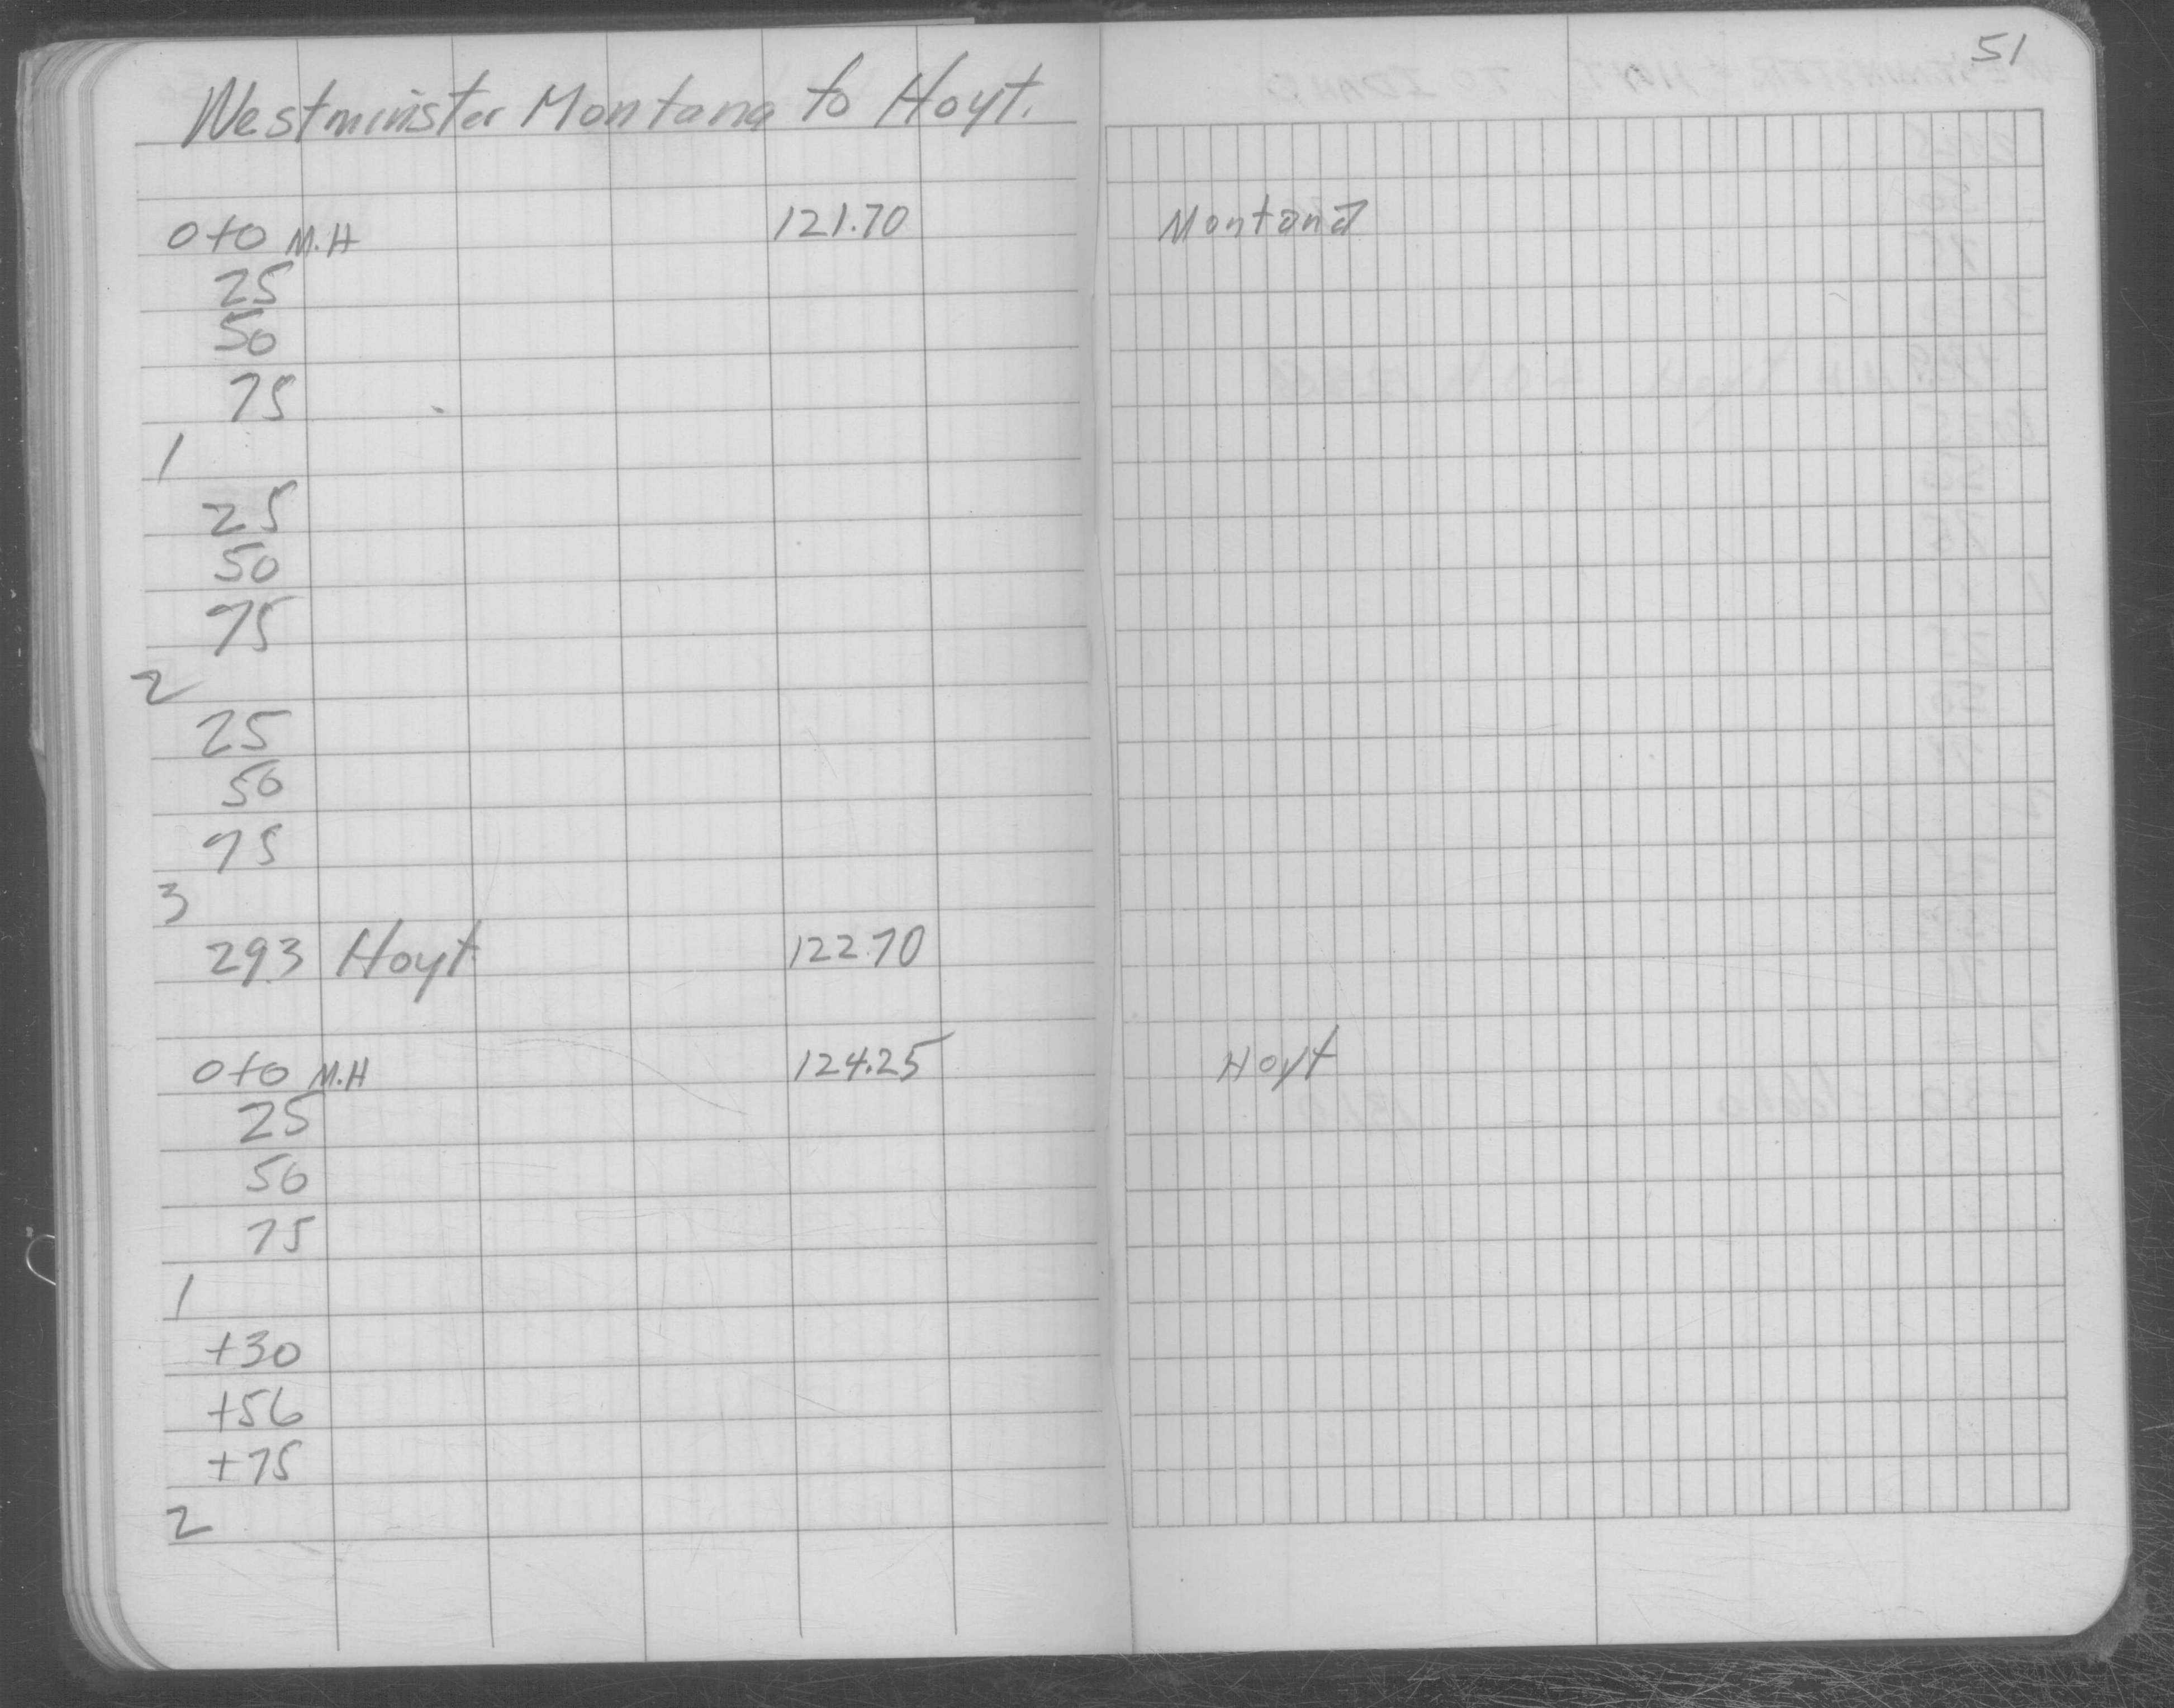 51
Westminister Montana to Hoyt.
0+0 M.H 121.70 Montana
25
50
75
1
25
50
75
2
25
50
75
3
293 Hoyt 122.70
0+0 M.H 124.25 Hoyt
25
50
75
1
+30
+56
+75
2